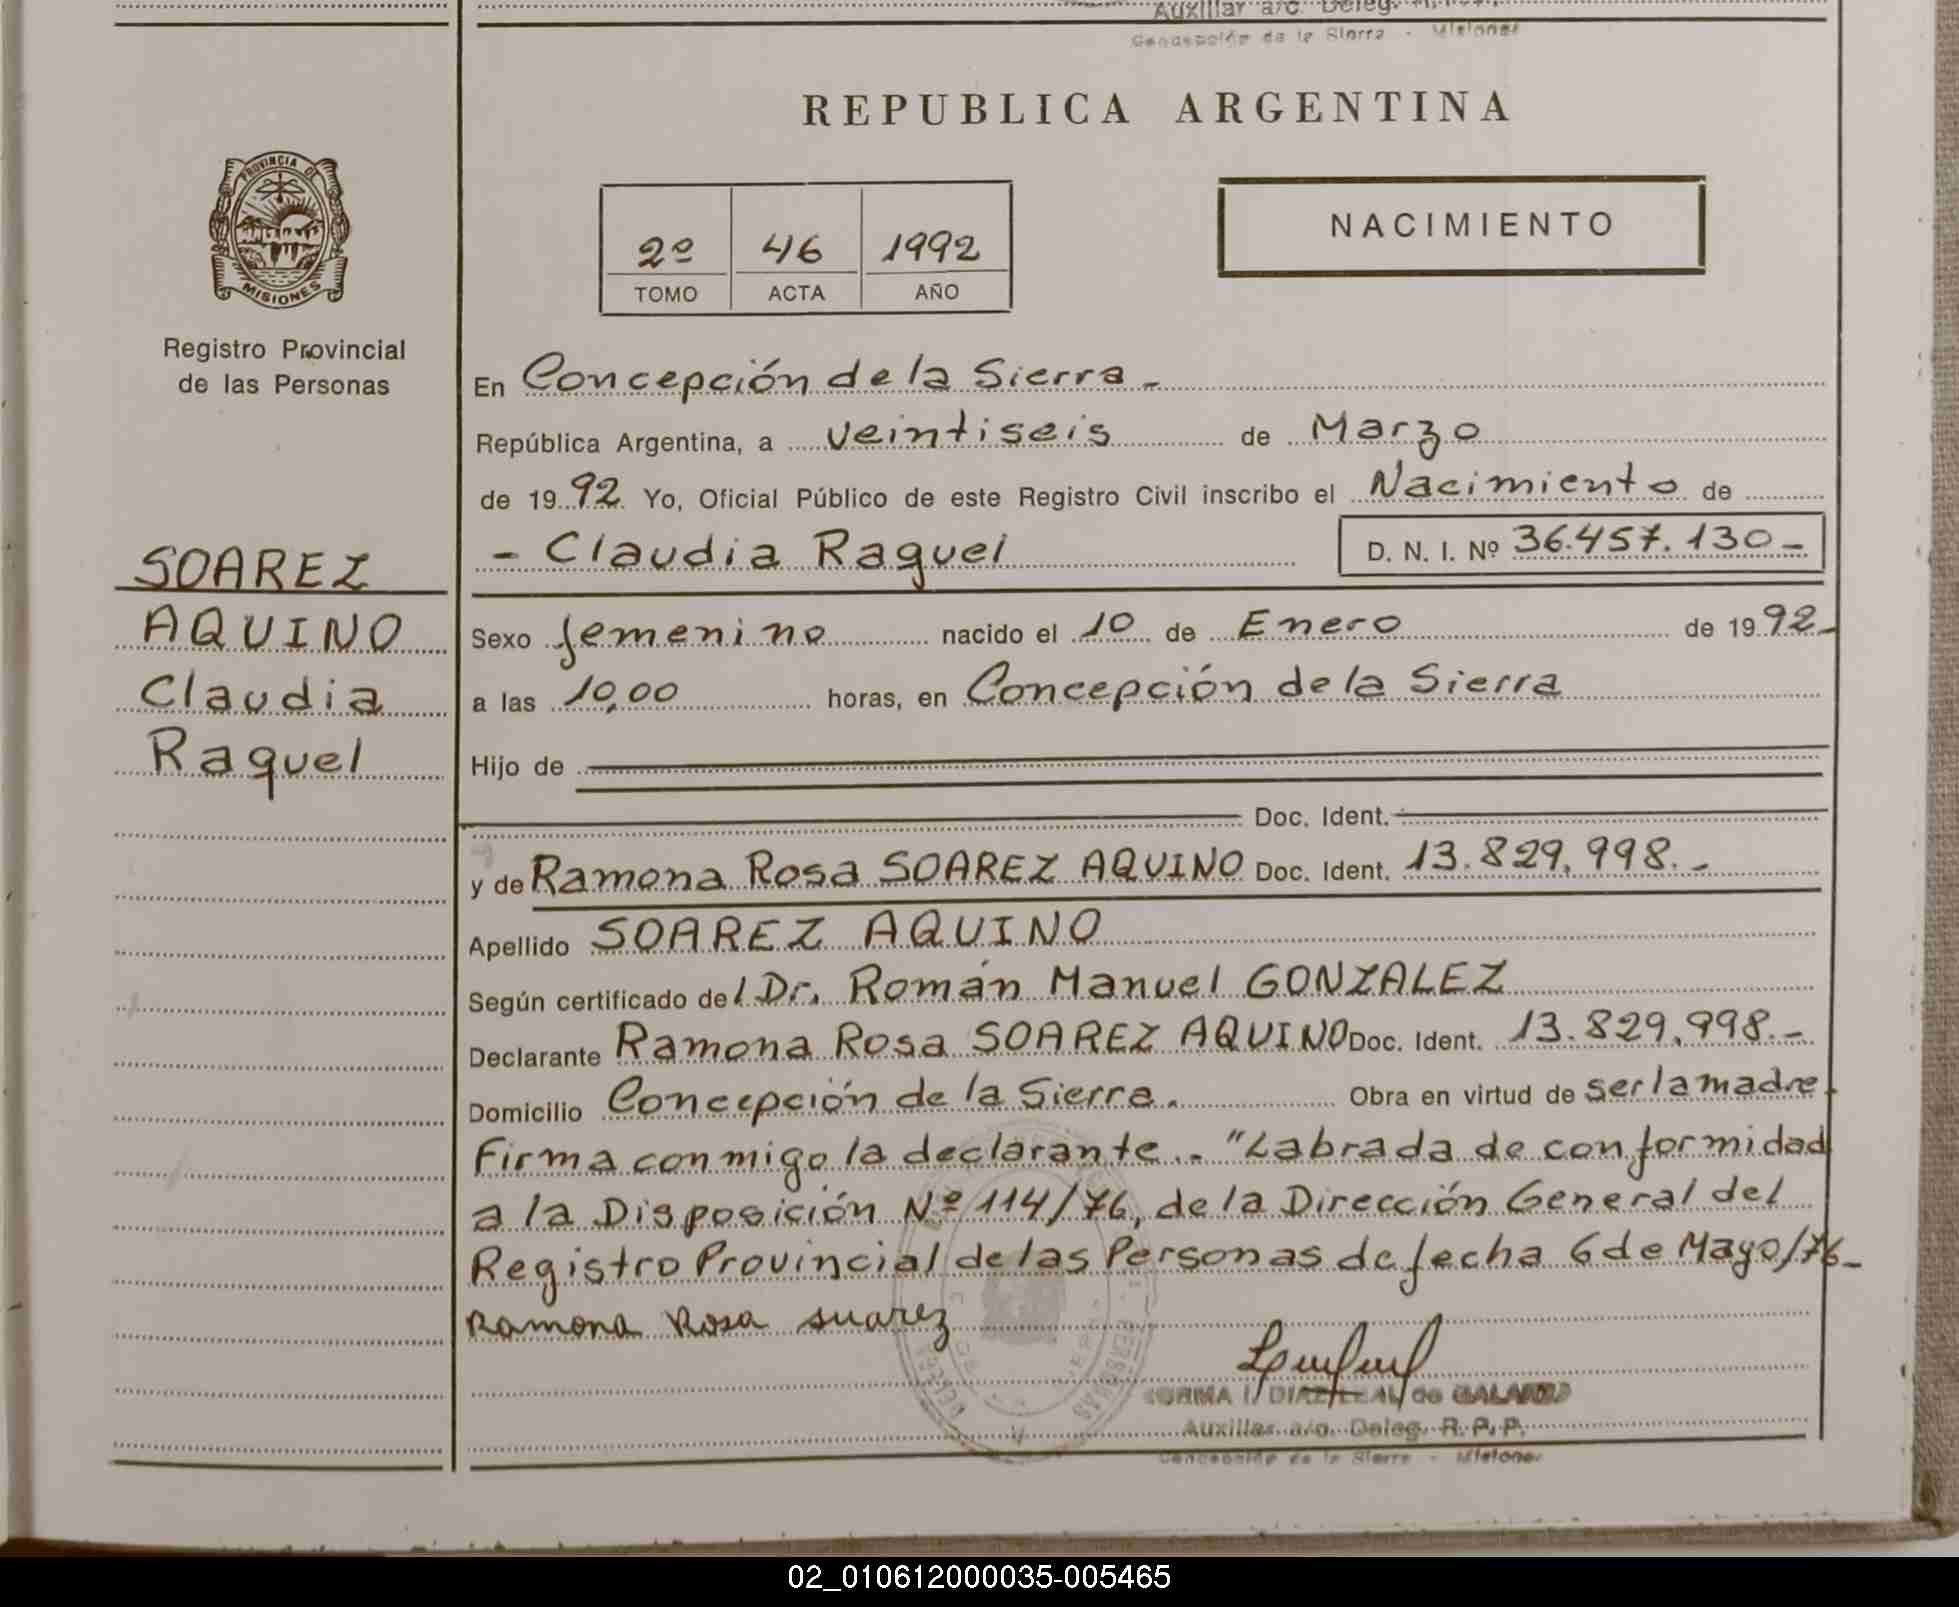 Auxiliar a/c. Deleg.
Concepción de la Sierra - Misiones
REPUBLICA ARGENTINA
PROVINCIA DE
MISIONES
Registro Provincial
de las Personas
2º 46 1992
TOMO ACTA AÑO
NACIMIENTO
SOAREZ
AQUINO
Claudia
Raquel
En Concepción de la Sierra.-
República Argentina, a veintiseis de Marzo
de 1992. Yo, Oficial Público de este Registro Civil inscribo el Nacimiento de
- Claudia Raquel D. N. I. Nº 36.457.130-
Sexo femenino nacido el 10 de Enero de 1992-
a las 10,00 horas, en Concepción de la Sierra
Hijo de
Doc. Ident.
y de Ramona Rosa SOAREZ AQUINO Doc. Ident. 13.829.998.-
Apellido SOAREZ AQUINO
Según certificado del Dr. Román Manuel GONZALEZ
Declarante Ramona Rosa SOAREZ AQUINO Doc. Ident. 13.829.998.-
Domicilio Concepción de la Sierra. Obra en virtud de ser la madre.
Firma conmigo la declarante.- "Labrada de conformidad
a la Disposición Nº 114/76, de la Dirección General del
Registro Provincial de las Personas de fecha 6 de Mayo/76-
Ramona Rosa suarez
NORMA I. DIAZ LEAL de
Auxiliar a/c. Deleg. R. P. P.
Concepción de la Sierra - Misiones
02_010612000035-005465